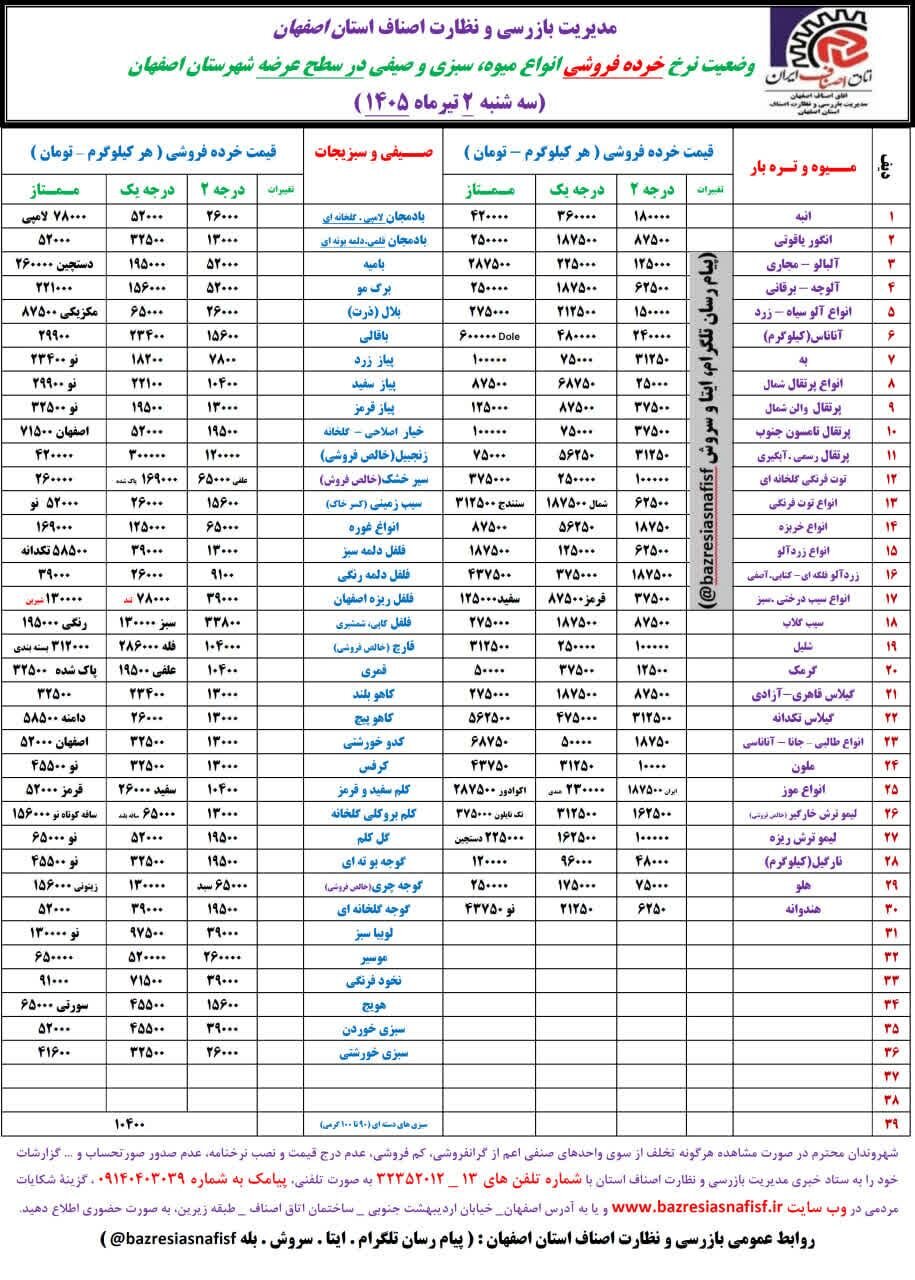 مدیریت بازرسی و نظارت اصناف استان اصفهان
وضعیت نرخ خرده فروشی انواع میوه، سبزی و صیفی در سطح عرضه شهرستان اصفهان
(سه شنبه ۲ تیرماه ۱۴۰۵)
اتاق اصناف ایران
اتاق اصناف اصفهان
مدیریت بازرسی و نظارت اصناف
استان اصفهان
ردیف میوه و تره بار قیمت خرده فروشی ( هر کیلوگرم – تومان ) صیفی و سبزیجات قیمت خرده فروشی ( هر کیلوگرم – تومان )
تغییرات درجه ۲ درجه یک ممتاز تغییرات درجه ۲ درجه یک ممتاز
۱ انبه ۱۸۰۰۰۰ ۳۶۰۰۰۰ ۴۲۰۰۰۰ بادمجان لامپی . گلخانه ای ۲۶۰۰۰ ۵۲۰۰۰ ۷۸۰۰۰ لامپی
۲ انگور یاقوتی ۸۷۵۰۰ ۱۸۷۵۰۰ ۲۵۰۰۰۰ بادمجان قلمی.دلمه بوته ای ۱۳۰۰۰ ۳۲۵۰۰ ۵۲۰۰۰
۳ آلبالو – مجاری ۱۲۵۰۰۰ ۲۲۵۰۰۰ ۲۸۷۵۰۰ بامیه ۵۲۰۰۰ ۱۹۵۰۰۰ دستچین ۲۶۰۰۰۰
۴ آلوچه – برقانی ۶۲۵۰۰ ۱۸۷۵۰۰ ۲۵۰۰۰۰ برگ مو ۵۲۰۰۰ ۱۵۶۰۰۰ ۲۲۱۰۰۰
۵ انواع آلو سیاه – زرد ۱۵۰۰۰۰ ۲۱۲۵۰۰ ۲۷۵۰۰۰ بلال (ذرت) ۲۶۰۰۰ ۶۵۰۰۰ مکزیکی ۸۷۵۰۰
۶ آناناس(کیلوگرم) ۲۴۰۰۰۰ ۴۸۰۰۰۰ Dole ۶۰۰۰۰۰ باقالی ۱۵۶۰۰ ۲۳۴۰۰ ۲۹۹۰۰
۷ به ۳۱۲۵۰ ۷۵۰۰۰ ۱۰۰۰۰۰ پیاز زرد ۷۸۰۰ ۱۸۲۰۰ نو ۲۳۴۰۰
۸ انواع پرتقال شمال ۲۵۰۰۰ ۶۸۷۵۰ ۸۷۵۰۰ پیاز سفید ۱۰۴۰۰ ۲۲۱۰۰ نو ۲۹۹۰۰
۹ پرتقال والن شمال ۳۷۵۰۰ ۸۷۵۰۰ ۱۲۵۰۰۰ پیاز قرمز ۱۳۰۰۰ ۱۹۵۰۰ نو ۳۲۵۰۰
۱۰ پرتقال تامسون جنوب ۳۷۵۰۰ ۷۵۰۰۰ ۱۰۰۰۰۰ خیار اصلاحی – گلخانه ۱۹۵۰۰ ۵۲۰۰۰ اصفهان ۷۱۵۰۰
۱۱ پرتقال رسمی .آبگیری ۳۱۲۵۰ ۵۶۲۵۰ ۷۵۰۰۰ زنجبیل(خالص فروشی) ۱۲۰۰۰۰ ۳۰۰۰۰۰ ۴۲۰۰۰۰
۱۲ توت فرنگی گلخانه ای ۱۰۰۰۰۰ ۲۵۰۰۰۰ ۳۷۵۰۰۰ سیر خشک(خالص فروش) علفی ۶۵۰۰۰ ۱۶۹۰۰۰ پاک شده ۲۶۰۰۰۰
۱۳ انواع توت فرنگی ۶۲۵۰۰ شمال ۱۸۷۵۰۰ سنندج ۳۱۲۵۰۰ سیب زمینی (کسر خاک) ۱۵۶۰۰ ۲۶۰۰۰ ۵۲۰۰۰ نو
۱۴ انواع خربزه ۱۸۷۵۰ ۵۶۲۵۰ ۸۷۵۰۰ انواغ غوره ۶۵۰۰۰ ۱۲۵۰۰۰ ۱۶۹۰۰۰
۱۵ انواع زردآلو ۶۲۵۰۰ ۱۲۵۰۰۰ ۱۸۷۵۰۰ فلفل دلمه سبز ۱۳۰۰۰ ۳۹۰۰۰ ۵۸۵۰۰ تکدانه
۱۶ زردآلو قلگه ای – کتابی.آصفی ۱۸۷۵۰۰ ۳۷۵۰۰۰ ۴۳۷۵۰۰ فلفل دلمه رنگی ۹۱۰۰ ۲۶۰۰۰ ۳۹۰۰۰
۱۷ انواع سیب درختی .سبز ۳۷۵۰۰ قرمز۸۷۵۰۰ سفید۱۲۵۰۰۰ فلفل ریزه اصفهان ۳۹۰۰۰ ۷۸۰۰۰ تند ۱۳۰۰۰۰ شیرین
۱۸ سیب گلاب ۸۷۵۰۰ ۱۸۷۵۰۰ ۲۷۵۰۰۰ فلفل کاپی، شمشیری ۳۳۸۰۰ سبز ۱۳۰۰۰۰ رنگی ۱۹۵۰۰۰
۱۹ شلیل ۱۰۰۰۰۰ ۲۵۰۰۰۰ ۳۱۲۵۰۰ قارچ (خالص فروشی) ۱۰۴۰۰۰ فله ۲۸۶۰۰۰ ۳۱۲۰۰۰ بسته بندی
۲۰ گرمک ۱۲۵۰۰ ۳۷۵۰۰ ۵۰۰۰۰ قمری ۱۰۴۰۰ علفی ۱۹۵۰۰ پاک شده ۳۲۵۰۰
۲۱ گیلاس قاهری–آزادی ۸۷۵۰۰ ۱۸۷۵۰۰ ۲۷۵۰۰۰ کاهو بلند ۱۳۰۰۰ ۲۳۴۰۰ ۳۲۵۰۰
۲۲ گیلاس تکدانه ۳۱۲۵۰۰ ۴۷۵۰۰۰ ۵۶۲۵۰۰ کاهو پیچ ۱۳۰۰۰ ۲۶۰۰۰ دامنه ۵۸۵۰۰
۲۳ انواع طالبی – جانا – آناناسی ۱۸۷۵۰ ۵۰۰۰۰ ۶۸۷۵۰ کدو خورشتی ۱۳۰۰۰ ۳۲۵۰۰ اصفهان ۵۲۰۰۰
۲۴ ملون ۱۰۰۰۰ ۳۱۲۵۰ ۴۳۷۵۰ کرفس ۱۳۰۰۰ ۳۲۵۰۰ نو ۴۵۵۰۰
۲۵ انواع موز ایران ۱۸۷۵۰۰ ۲۳۰۰۰۰ هندی اکوادور ۲۸۷۵۰۰ کلم سفید و قرمز ۱۰۴۰۰ سفید ۲۶۰۰۰ قرمز ۵۲۰۰۰
۲۶ لیمو ترش خارگیر (خالص فروشی) ۱۶۲۵۰۰ ۳۱۲۵۰۰ تک نایلون ۳۷۵۰۰۰ کلم بروکلی گلخانه ۱۳۰۰۰ ۶۵۰۰۰ ساقه بلند ساقه کوتاه نو ۱۵۶۰۰۰
۲۷ لیمو ترش ریزه ۱۰۰۰۰۰ ۱۶۲۵۰۰ ۲۲۵۰۰۰ دستچین گل کلم ۱۹۵۰۰ ۵۲۰۰۰ نو ۶۵۰۰۰
۲۸ نارگیل(کیلوگرم) ۴۸۰۰۰ ۹۶۰۰۰ ۱۲۰۰۰۰ گوجه بوته ای ۱۹۵۰۰ ۳۲۵۰۰ نو ۴۵۵۰۰
۲۹ هلو ۷۵۰۰۰ ۱۷۵۰۰۰ ۲۵۰۰۰۰ گوجه چری(خالص فروشی) ۶۵۰۰۰ سبد ۱۳۰۰۰۰ زیتونی ۱۵۶۰۰۰
۳۰ هندوانه ۶۲۵۰ ۲۱۲۵۰ نو ۴۳۷۵۰ گوجه گلخانه ای ۱۹۵۰۰ ۳۹۰۰۰ ۵۲۰۰۰
۳۱ لوبیا سبز ۳۹۰۰۰ ۹۷۵۰۰ نو ۱۳۰۰۰۰
۳۲ موسیر ۲۶۰۰۰۰ ۵۲۰۰۰۰ ۶۵۰۰۰۰
۳۳ نخود فرنگی ۳۹۰۰۰ ۷۱۵۰۰ ۹۱۰۰۰
۳۴ هویج ۱۵۶۰۰ ۴۵۵۰۰ سورتی ۶۵۰۰۰
۳۵ سبزی خوردن ۳۹۰۰۰ ۴۵۵۰۰ ۵۲۰۰۰
۳۶ سبزی خورشتی ۲۶۰۰۰ ۳۲۵۰۰ ۴۱۶۰۰
۳۷
۳۸
۳۹ سبزی های دسته ای (۹۰ تا ۱۰۰ گرمی) ۱۰۴۰۰
(پیام رسان تلگرام، ایتا و سروش bazresiasnafisf@)
شهروندان محترم در صورت مشاهده هرگونه تخلف از سوی واحدهای صنفی اعم از گرانفروشی، کم فروشی، عدم درج قیمت و نصب نرخنامه، عدم صدور صورتحساب و ... گزارشات
خود را به ستاد خبری مدیریت بازرسی و نظارت اصناف استان با شماره تلفن های ۱۳ _ ۳۲۳۵۲۰۱۲ به صورت تلفنی، پیامک به شماره ۰۹۱۴۰۴۰۳۰۳۹ ، گزینهٔ شکایات
مردمی در وب سایت www.bazresiasnafisf.ir و یا به آدرس اصفهان_ خیابان اردیبهشت جنوبی _ ساختمان اتاق اصناف _ طبقه زیرین، به صورت حضوری اطلاع دهید.
روابط عمومی بازرسی و نظارت اصناف استان اصفهان : ( پیام رسان تلگرام . ایتا . سروش . بله bazresiasnafisf@ )